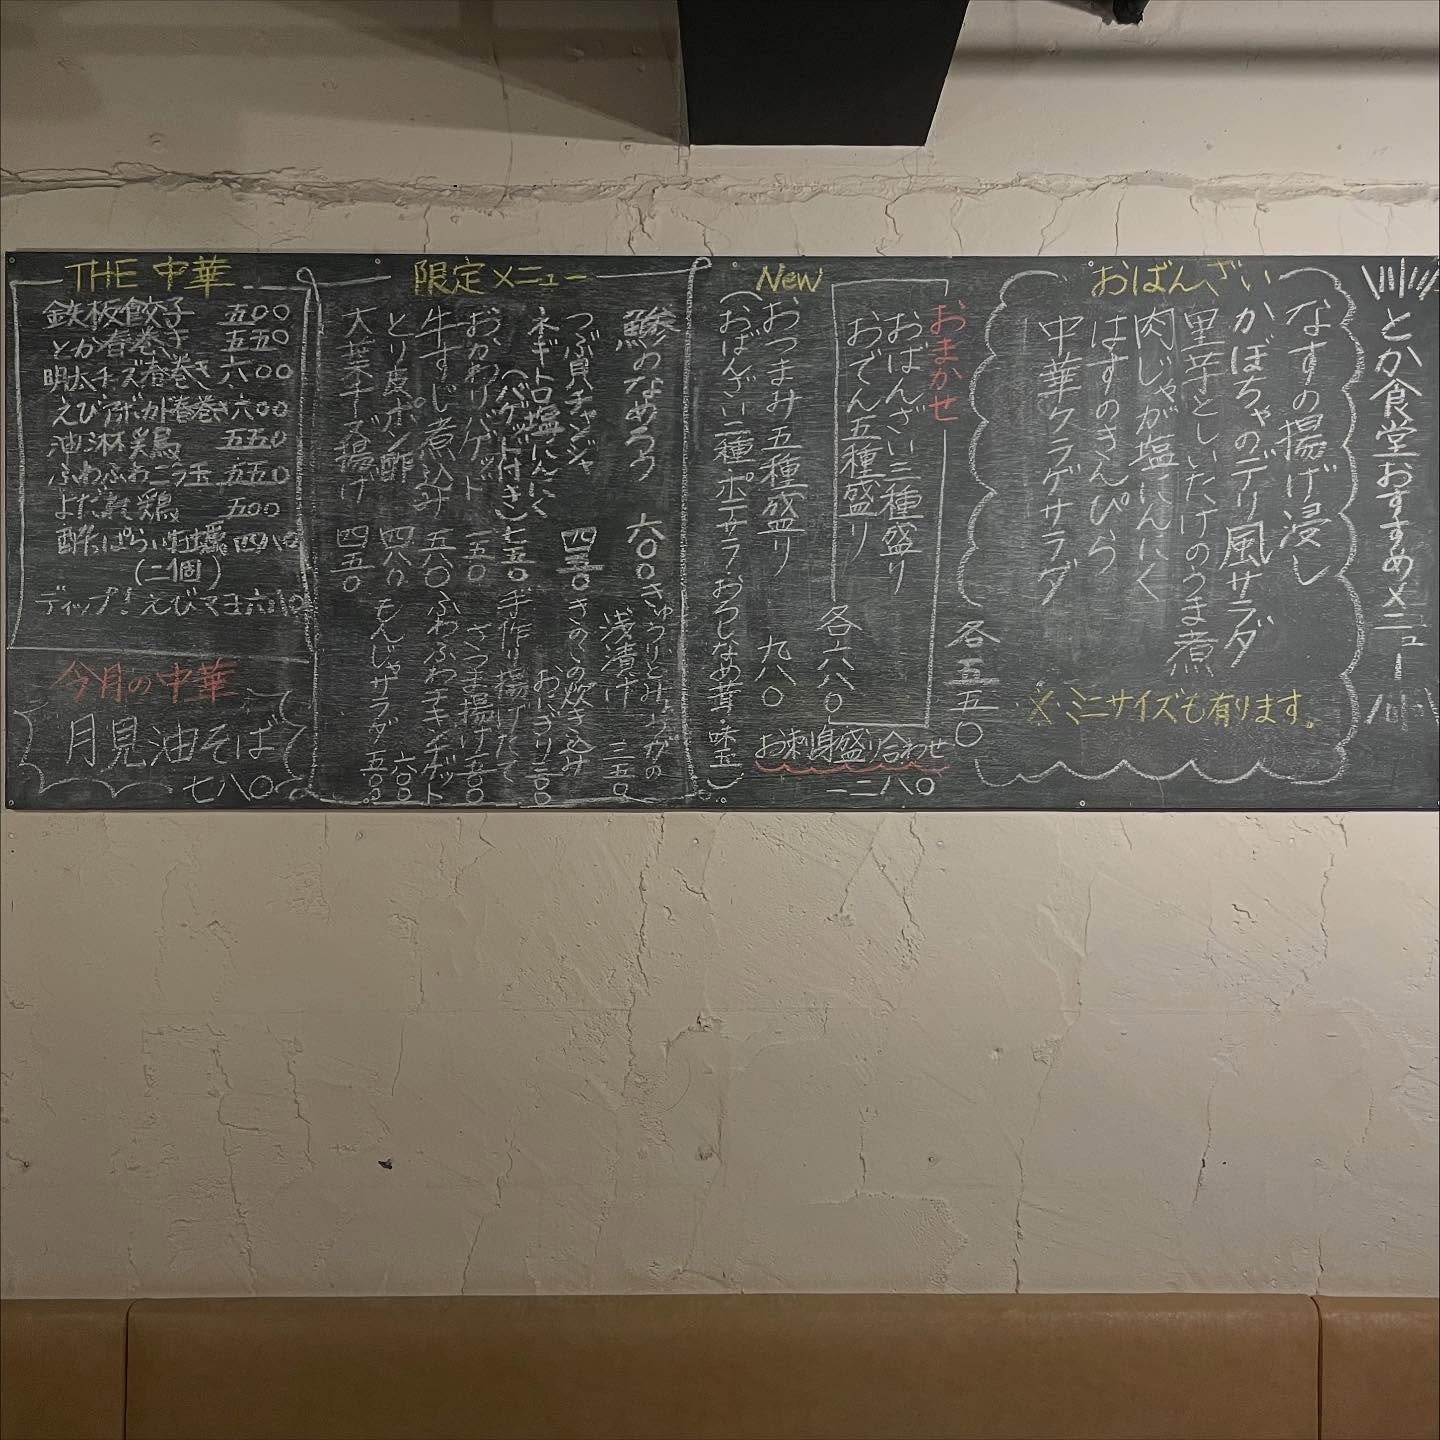 とか食堂おすすめメニュー
おばんざい
なすの揚げ浸し
かぼちゃのデリ風サラダ
里芋としいたけのうま煮
肉じゃが塩にんにく
はすのきんぴら
中華クラゲサラダ
各五五〇
※ミニサイズも有ります。
おまかせ
おばんざい三種盛り
おでん五種盛り
各六八〇
お刺身盛り合わせ
一二八〇
New
おつまみ五種盛り 九八〇
(おばんざい二種・ポテサラ・おろしなめ茸・味玉)
限定メニュー
鰺のなめろう 六〇〇
つぶ貝チャンジャ 四五〇
ネギトロ塩にんにく
(バゲット付き) 七五〇
おかわりバゲット 一五〇
牛すじ煮込み 五八〇
とり皮ポン酢 四八〇
大葉チーズ揚げ 四五〇
きゅうりとみょうがの
浅漬け 三五〇
きのこの炊き込み
おにぎり 二〇〇
手作り揚げたて
さつま揚げ 五〇〇
ふわふわチキンナゲット 六〇〇
もんじゃサラダ 五〇〇
THE 中華
鉄板餃子 五〇〇
とか春巻き 五五〇
明太チーズ春巻き 六〇〇
えびアボカド春巻き 六〇〇
油淋鶏 五五〇
ふわふわニラ玉 五五〇
よだれ鶏 五〇〇
酔っぱらい牡蠣 四八〇
(二個)
ディップ！えびマヨ 六八〇
今月の中華
月見油そば
七八〇